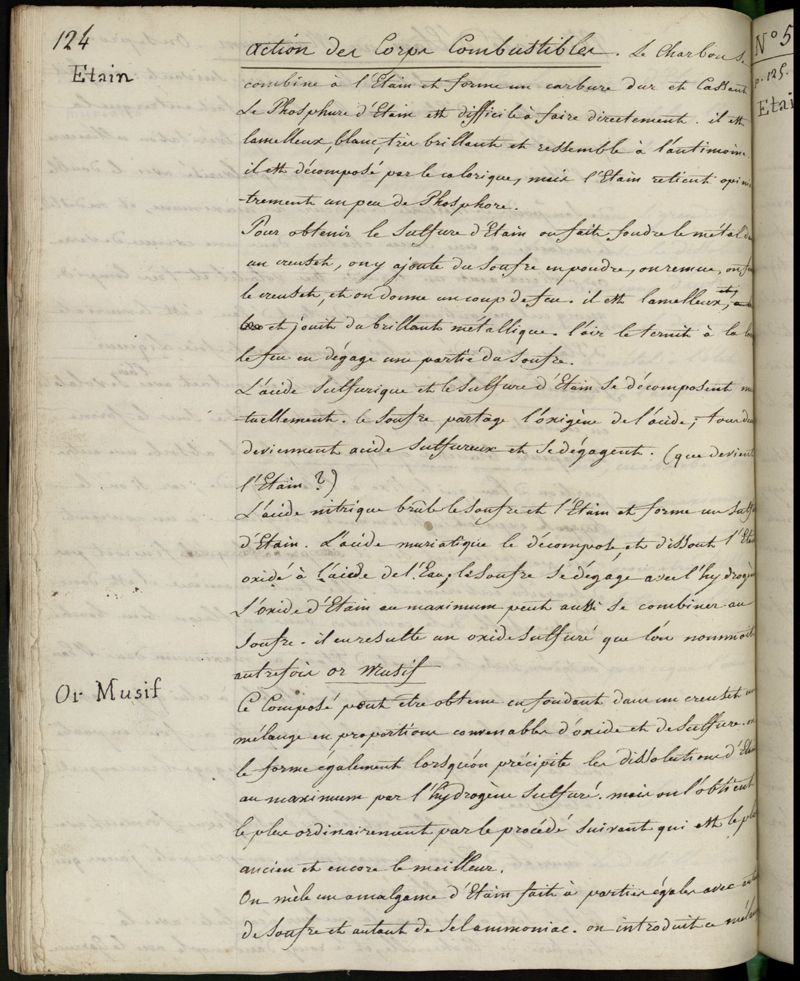 124
Etain
action des Corps Combustibles. Le Charbon se
combine à l'Etain et forme un carbure dur et Cassant
Le Phosphure d'Etain est difficile à faire directement. il est
lamelleux, blanc, très brillant et ressemble à l'antimoine.
il est décomposé par le calorique, mais l'Etain retient opini
-trement un peu de Phosphore.
Pour obtenir le Sulfure d'Etain on fait fondre le métal da
un creuset, on y ajoute du Soufre en poudre, on remue, on
le creuset, et on donne un coup de feu. il est lamelleux, et
et jouit du brillant métallique. l'air le ternit à la
le feu en dégage une partie du Soufre.
L'acide Sulfurique et le Sulfure d'Etain se décomposent mu
-tuellement. le Soufre partage l'oxigène de l'acide; tous deux
deviennent acide Sulfureux et se dégagent. (que devient
l'Etain ?)
L'acide nitrique brule le Soufre et l'Etain et forme un Sulfa
d'Etain. L'acide muriatique le décompose, et dissout l'Eta
oxidé à l'aide de l'Eau, le Soufre se dégage avec l'hydrogèn
L'oxide d'Etain au maximum peut aussi se combiner au
Soufre. il en resulte un oxide Sulfuré que l'on nommoit
autrefois or Musif
Or Musif
Ce Composé peut être obtenu en fondant dans un creuset un
mélange en proportions convenables d'oxide et de Sulfure. on
le forme également lorsqu'on précipite les dissolutions d'Etain
au maximum par l'hydrogène Sulfuré. mais on l'obtient
le plus ordinairement par le procédé suivant qui est le plus
ancien et encore le meilleur.
On mèle un amalgame d'Etain fait à parties égales avec
de Soufre et autant de Sel ammoniac. on introduit ce mélan
N° 5
p. 125.
Etai